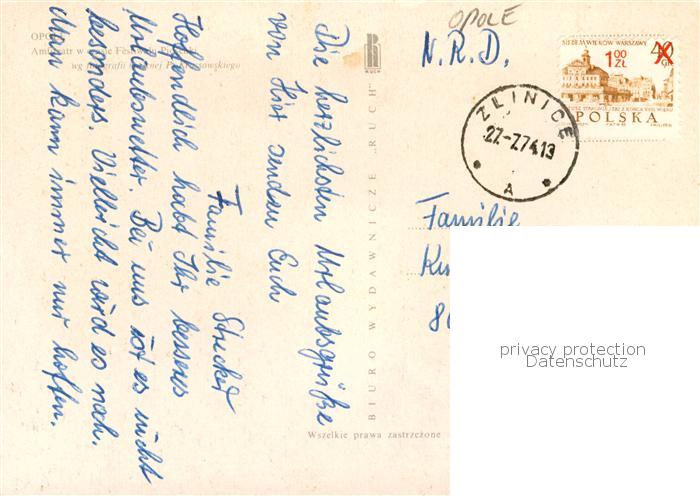 OPOLE
OPO
Amfiteatr w czasie Festiwalu
wg fotografii
Die herzlichsten Urlaubsgrüße
von Hier senden Euch
Familie Strecker
Hoffendlich habt Ihr besseres
Urlaubswetter. Bei uns ist es nicht
besonders. Vielleicht wird es noch.
Man kann immer nur hoffen.
RUCH
BIURO WYDAWNICZE „RUCH"
Wszelkie prawa zastrzeżone
N.R.D.
SIEDEM WIEKÓW WARSZAWY
40 GR
1.00 ZŁ
POLSKA
ZLINICE
27.-7.74.13
A
Familie
80
privacy protection
Datenschutz